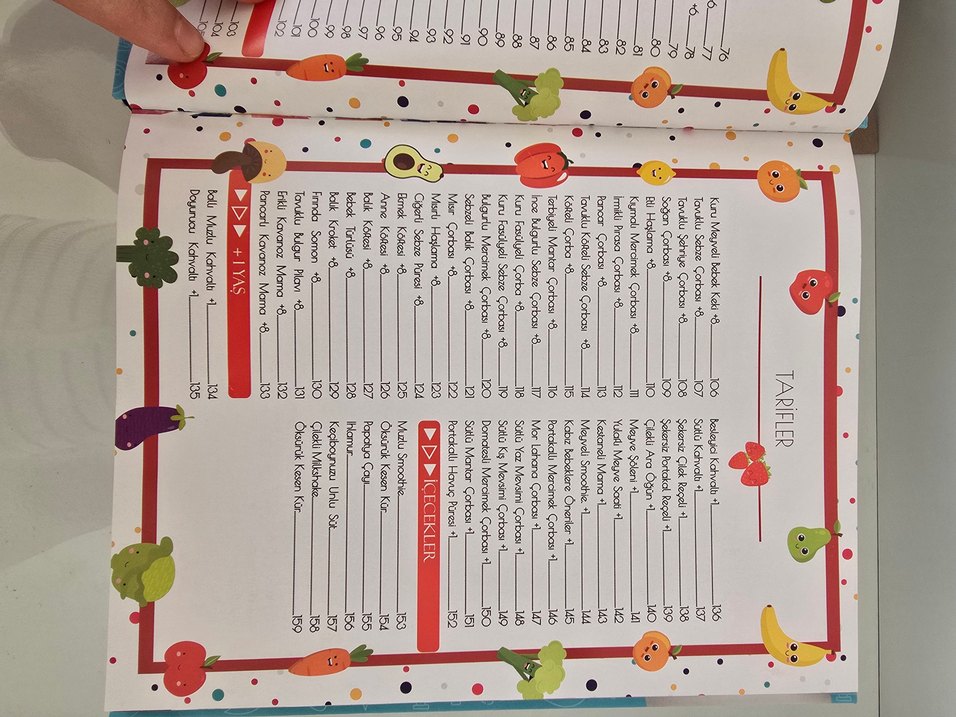 6.____76
____77
+6.____78
____79
____80
____81
____82
____83
____84
____85
____86
____87
____88
____89
____90
____91
____92
____93
____94
____95
____96
____97
____98
____99
____100
____101
____102
____103
____104
TARİFLER
Kuru Meyveli Bebek Keki +8____106
Tavuklu Sebze Çorbası +8____107
Tavuklu Şehriye Çorbası +8____108
Soğan Çorbası +8____109
Eti Haşlama +8____110
Kıymalı Mercimek Çorbası +8____111
İrmikli Pırasa Çorbası +8____112
Pancar Çorbası +8____113
Tavuklu Köfteli Sebze Çorbası +8____114
Köfteli Çorba +8____115
Terbiyeli Mantar Çorbası +8____116
İnce Bulgurlu Sebze Çorbası +8____117
Kuru Fasülyeli Çorba +8____118
Kuru Fasülyeli Sebze Çorbası +8____119
Bulgurlu Mercimek Çorbası +8____120
Sebzeli Balık Çorbası +8____121
Mısır Çorbası +8____122
Mısırlı Haşlama +8____123
Ciğerli Sebze Püresi +8____124
Ekmek Köftesi +8____125
Anne Köftesi +8____126
Balık Köftesi +8____127
Bebek Türlüsü +8____128
Balık Kroket +8____129
Fırında Somon +8____130
Tavuklu Bulgur Pilavı +8____131
Erikli Kavanoz Mama +8____132
Pancarlı Kavanoz Mama +8____133
+1 YAŞ
Ballı Muzlu Kahvaltı +1____134
Doyurucu Kahvaltı +1____135
Besleyici Kahvaltı +1____136
Sütlü Kahvaltı +1____137
Şekersiz Çilek Reçeli +1____138
Şekersiz Portakal Reçeli +1____139
Çilekli Ara Öğün +1____140
Meyve Şöleni +1____141
Yulaflı Meyve Saati +1____142
Kestaneli Mama +1____143
Meyveli Smoothie +1____144
Kabız Bebeklere Öneriler +1____145
Portakallı Mercimek Çorbası +1____146
Mor Lahana Çorbası +1____147
Sütlü Yaz Mevsimi Çorbası +1____148
Sütlü Kış Mevsimi Çorbası +1____149
Domatesli Mercimek Çorbası +1____150
Sütlü Mantar Çorbası +1____151
Portakallı Havuç Püresi +1____152
İÇECEKLER
Muzlu Smoothie____153
Öksürük Kesen Kür____154
Papatya Çayı____155
Ihlamur____156
Keçiboynuzu Unlu Süt____157
Çilekli Milkshake____158
Öksürük Kesen Kür____159